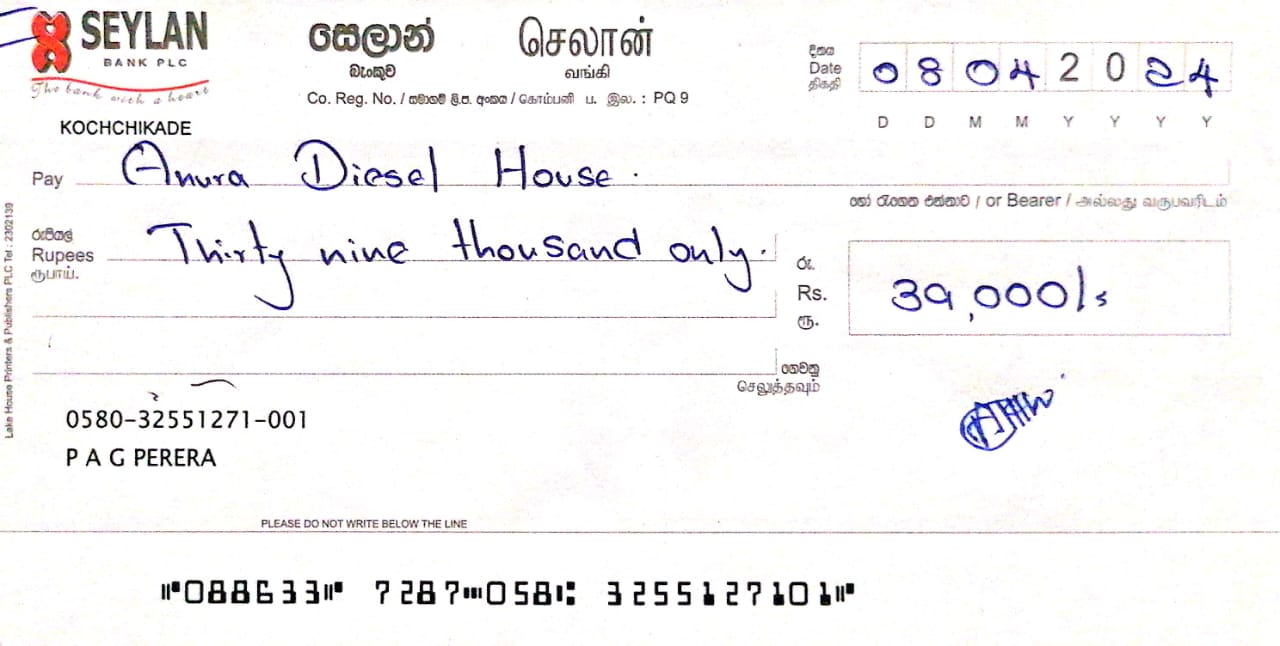 SEYLAN
BANK PLC
The bank with a heart
සෙලාන්
බැංකුව
செலான்
வங்கி
Co. Reg. No. / සමාගම් ලි.ප. අංකය / கொம்பனி ப. இல. : PQ 9
දිනය
Date
திகதி
0 8 0 4 2 0 2 4
D D M M Y Y Y Y
KOCHCHIKADE
Pay Anura Diesel House.
හෝ රැගෙන එන්නාට / or Bearer / அல்லது வருபவரிடம்
රුපියල්
Rupees
ரூபாய்.
Thirty nine thousand only.
රු.
Rs.
ரூ.
39,000/s
ගෙවනු
செலுத்தவும்
0580-32551271-001
P A G PERERA
Lake House Printers & Publishers PLC Tel : 2302139
PLEASE DO NOT WRITE BELOW THE LINE
⑈088633⑈ 7287⑉058⑆ 3255127101⑈